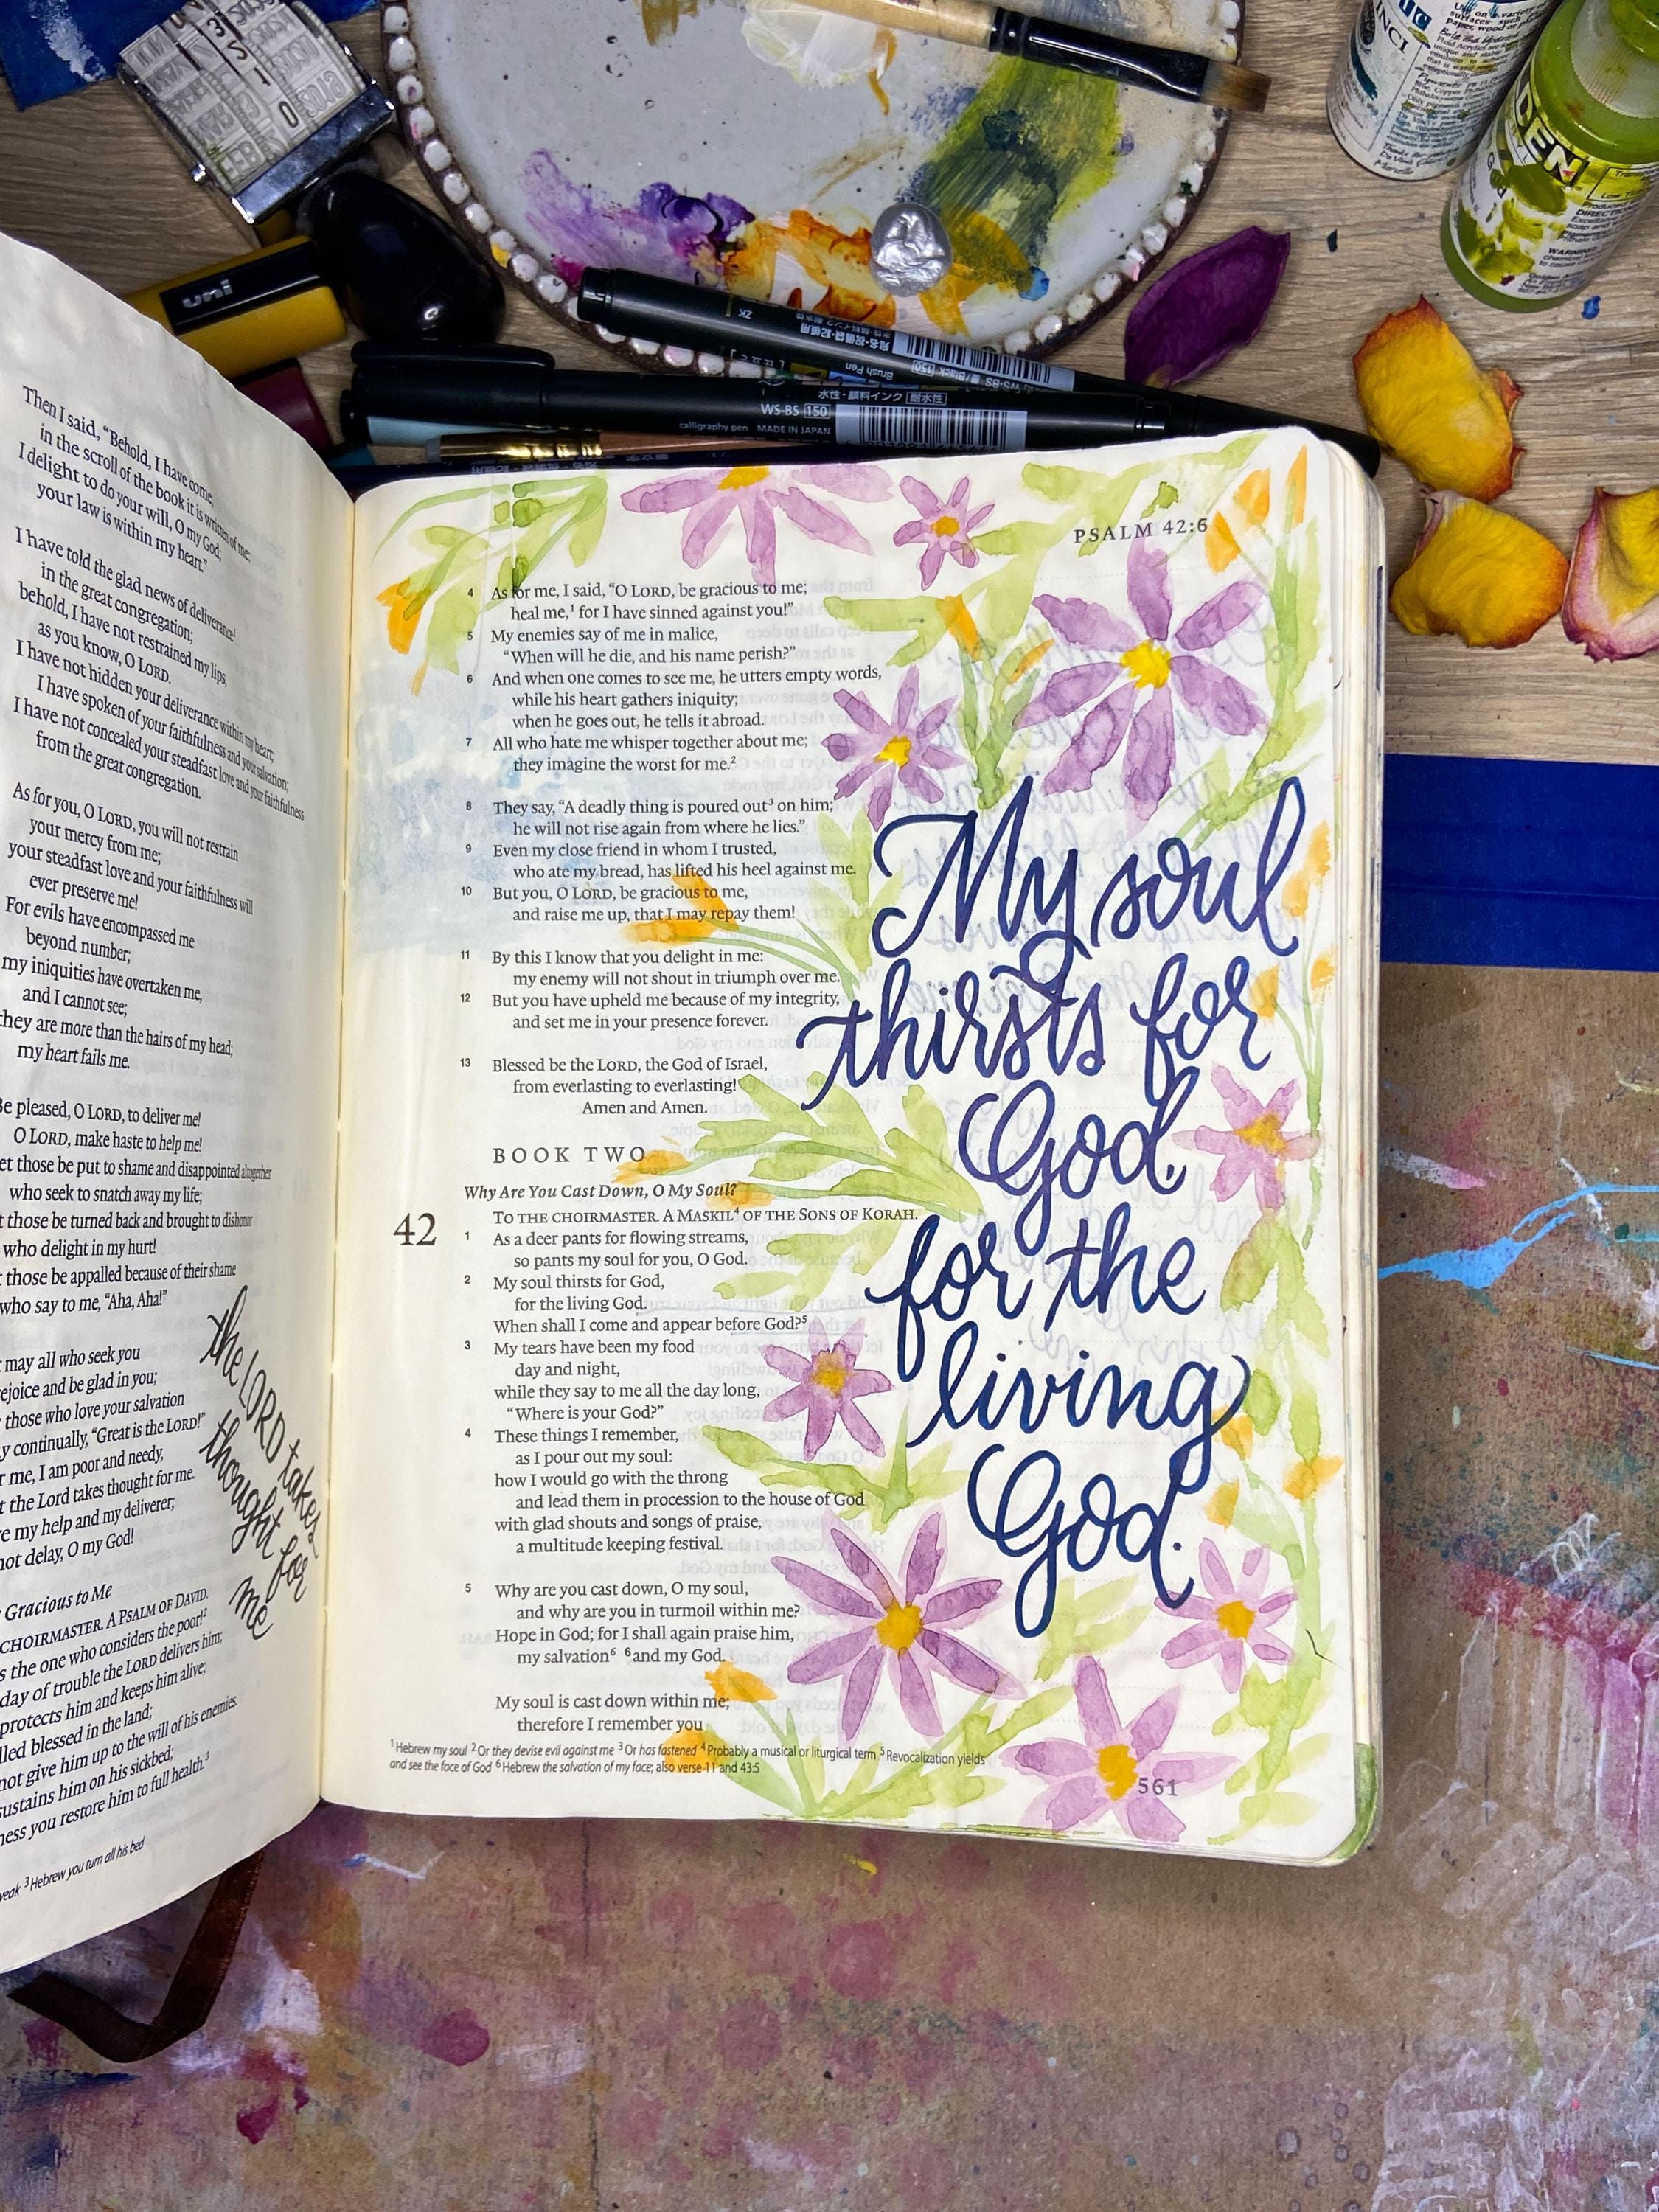 3
5
2
1
0
FEB
uni
ZK
Brush Pen
150
WS-BS / Black
水性・顔料インク 耐水性
WS-BS 150
calligraphy pen MADE IN JAPAN
INCI
DEN
Then I said, “Behold, I have come;
in the scroll of the book it is written of me:
I delight to do your will, O my God;
your law is within my heart.”
I have told the glad news of deliverance¹
in the great congregation;
behold, I have not restrained my lips,
as you know, O LORD.
I have not hidden your deliverance within my heart;
I have spoken of your faithfulness and your salvation;
I have not concealed your steadfast love and your faithfulness
from the great congregation.
As for you, O LORD, you will not restrain
your mercy from me;
your steadfast love and your faithfulness will
ever preserve me!
For evils have encompassed me
beyond number;
my iniquities have overtaken me,
and I cannot see;
they are more than the hairs of my head;
my heart fails me.
Be pleased, O LORD, to deliver me!
O LORD, make haste to help me!
et those be put to shame and disappointed altogether
who seek to snatch away my life;
t those be turned back and brought to dishonor
who delight in my hurt!
those be appalled because of their shame
who say to me, “Aha, Aha!”
may all who seek you
ejoice and be glad in you;
those who love your salvation
y continually, “Great is the LORD!”
r me, I am poor and needy,
t the Lord takes thought for me.
re my help and my deliverer;
not delay, O my God!
the LORD takes
thought for
me
Gracious to Me
CHOIRMASTER. A PSALM OF DAVID.
s the one who considers the poor!²
day of trouble the LORD delivers him;
protects him and keeps him alive;
lled blessed in the land;
not give him up to the will of his enemies.
sustains him on his sickbed;
ness you restore him to full health.³
weak ³ Hebrew you turn all his bed
PSALM 42:6
4 As for me, I said, “O LORD, be gracious to me;
heal me,¹ for I have sinned against you!”
5 My enemies say of me in malice,
“When will he die, and his name perish?”
6 And when one comes to see me, he utters empty words,
while his heart gathers iniquity;
when he goes out, he tells it abroad.
7 All who hate me whisper together about me;
they imagine the worst for me.²
8 They say, “A deadly thing is poured out³ on him;
he will not rise again from where he lies.”
9 Even my close friend in whom I trusted,
who ate my bread, has lifted his heel against me.
10 But you, O LORD, be gracious to me,
and raise me up, that I may repay them!
11 By this I know that you delight in me:
my enemy will not shout in triumph over me.
12 But you have upheld me because of my integrity,
and set me in your presence forever.
13 Blessed be the LORD, the God of Israel,
from everlasting to everlasting!
Amen and Amen.
BOOK TWO
Why Are You Cast Down, O My Soul?
TO THE CHOIRMASTER. A MASKIL⁴ OF THE SONS OF KORAH.
42 1 As a deer pants for flowing streams,
so pants my soul for you, O God.
2 My soul thirsts for God,
for the living God.
When shall I come and appear before God?⁵
3 My tears have been my food
day and night,
while they say to me all the day long,
“Where is your God?”
4 These things I remember,
as I pour out my soul:
how I would go with the throng
and lead them in procession to the house of God
with glad shouts and songs of praise,
a multitude keeping festival.
5 Why are you cast down, O my soul,
and why are you in turmoil within me?
Hope in God; for I shall again praise him,
my salvation⁶ ⁶ and my God.
My soul is cast down within me;
therefore I remember you
¹ Hebrew my soul ² Or they devise evil against me ³ Or has fastened ⁴ Probably a musical or liturgical term ⁵ Revocalization yields
and see the face of God ⁶ Hebrew the salvation of my face; also verse 11 and 43:5
561
My soul
thirsts for
God,
for the
living
God.